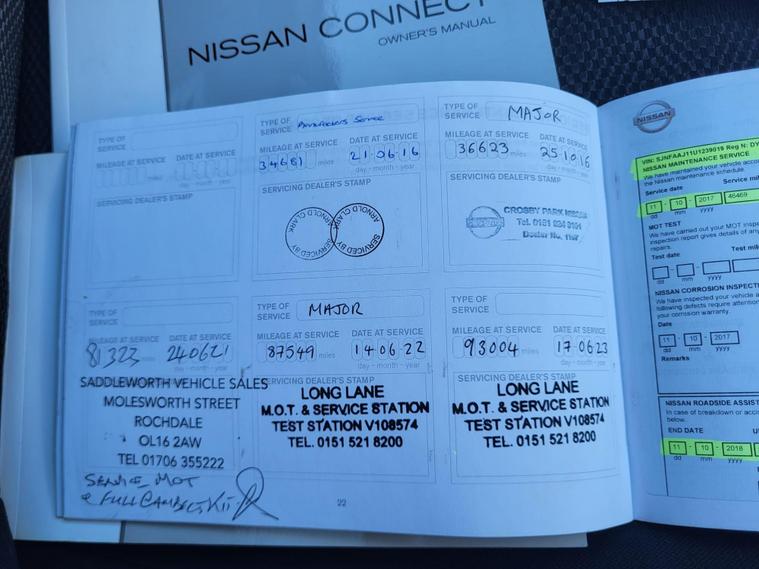 NISSAN CONNECT
OWNER'S MANUAL
TYPE OF
SERVICE
MILEAGE AT SERVICE
DATE AT SERVICE
miles
day - month - year
SERVICING DEALER'S STAMP
TYPE OF
SERVICE
Service
MILEAGE AT SERVICE
DATE AT SERVICE
34681 miles
21·06·16
day - month - year
SERVICING DEALER'S STAMP
ARNOLD CLARK
SERVICED BY
ARNOLD CLARK
SERVICED BY
TYPE OF
SERVICE
MAJOR
MILEAGE AT SERVICE
DATE AT SERVICE
36623 miles
25·10·16
day - month - year
SERVICING DEALER'S STAMP
NISSAN
CROSBY PARK NISSAN
Tel. 0151
Dealer No.
TYPE OF
SERVICE
MILEAGE AT SERVICE
DATE AT SERVICE
81323 miles
240621
day - month - year
SERVICING DEALER'S STAMP
SADDLEWORTH VEHICLE SALES
MOLESWORTH STREET
ROCHDALE
OL16 2AW
TEL 01706 355222
SERVICE MOT
& FULL CAMBELT KIT
TYPE OF
SERVICE
MAJOR
MILEAGE AT SERVICE
DATE AT SERVICE
87549 miles
14·06·22
day - month - year
SERVICING DEALER'S STAMP
LONG LANE
M.O.T. & SERVICE STATION
TEST STATION V108574
TEL. 0151 521 8200
TYPE OF
SERVICE
MILEAGE AT SERVICE
DATE AT SERVICE
93004 miles
17·06·23
day - month - year
SERVICING DEALER'S STAMP
LONG LANE
M.O.T. & SERVICE STATION
TEST STATION V108574
TEL. 0151 521 8200
22
NISSAN
VIN: SJNFAAJ11U1239019 Reg N: DY
NISSAN MAINTENANCE SERVICE
We have maintained your vehicle acco
the Nissan maintenance schedule.
Service date
Service mi
11 - 10 - 2017
46469
dd mm yyyy
MOT TEST
We have carried out your MOT
inspection report gives details of any
repairs.
Test date
Test mile
dd mm yyyy
NISSAN CORROSION INSPECT
We have inspected your vehicle a
following defects require attention
your corrosion warranty.
Date
11 - 10 - 2017
dd mm yyyy
Remarks
NISSAN ROADSIDE ASSIST
In case of breakdown or accid
below.
END DATE
11 - 10 - 2018
dd mm yyyy